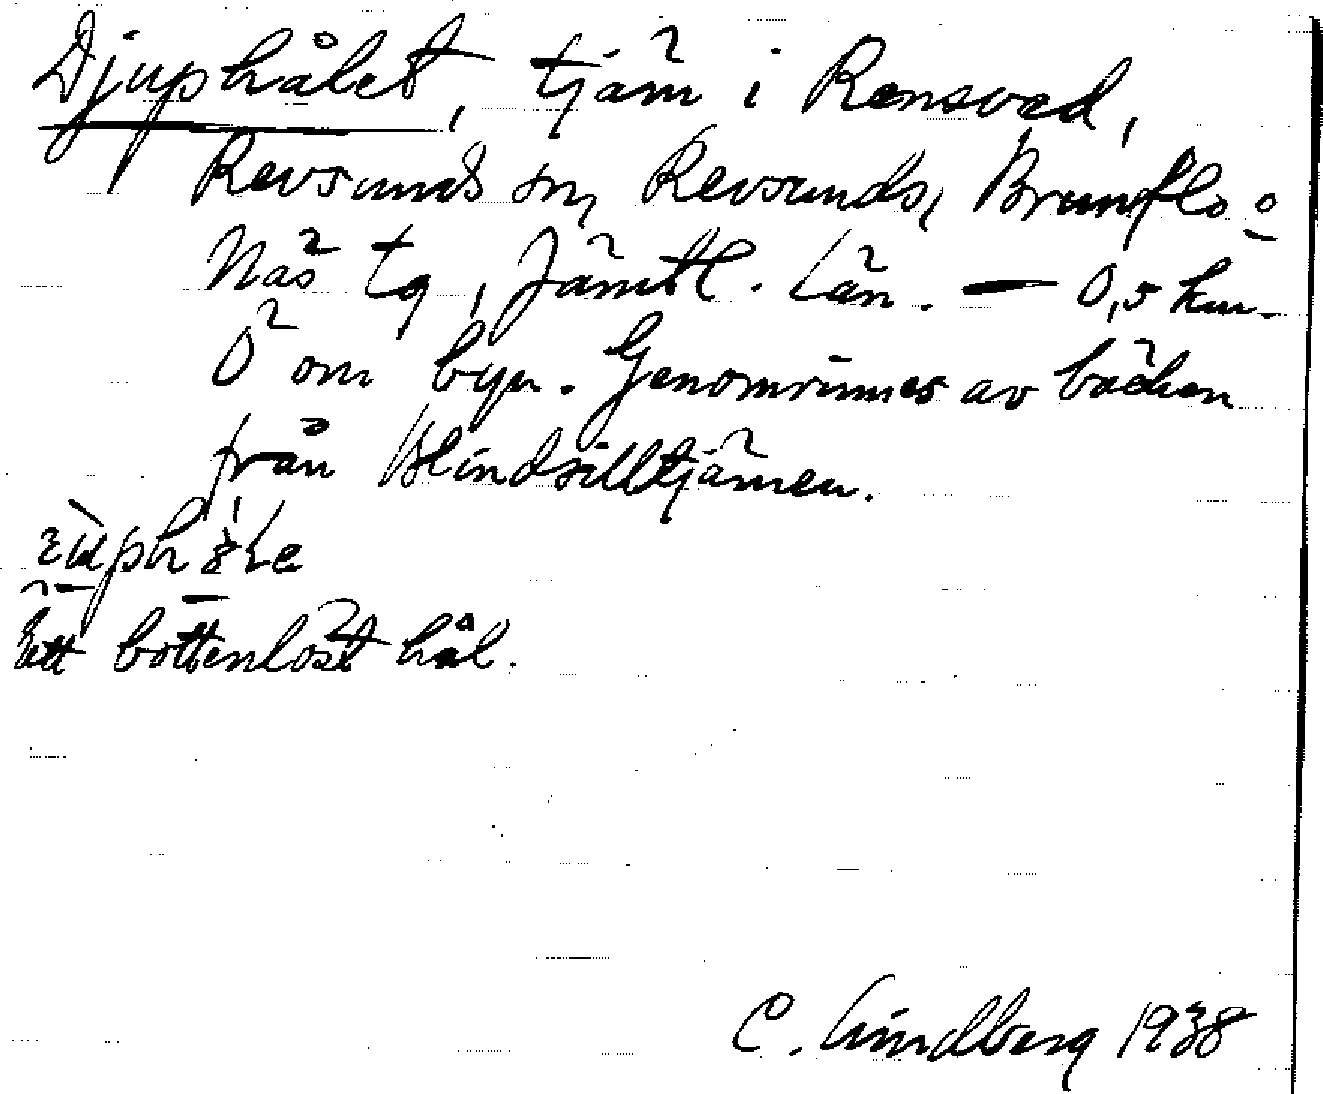 Djuphålet, tjärn i Rensved,
Revsunds sn, Revsunds, Brunflo o
Näs tg, Jämtl. län. — 0,5 km
Ö om byn. Genomrinnes av bäcken
från Blindsilltjärnen.
Ett bottenlöst hål.
C. Lindberg 1938